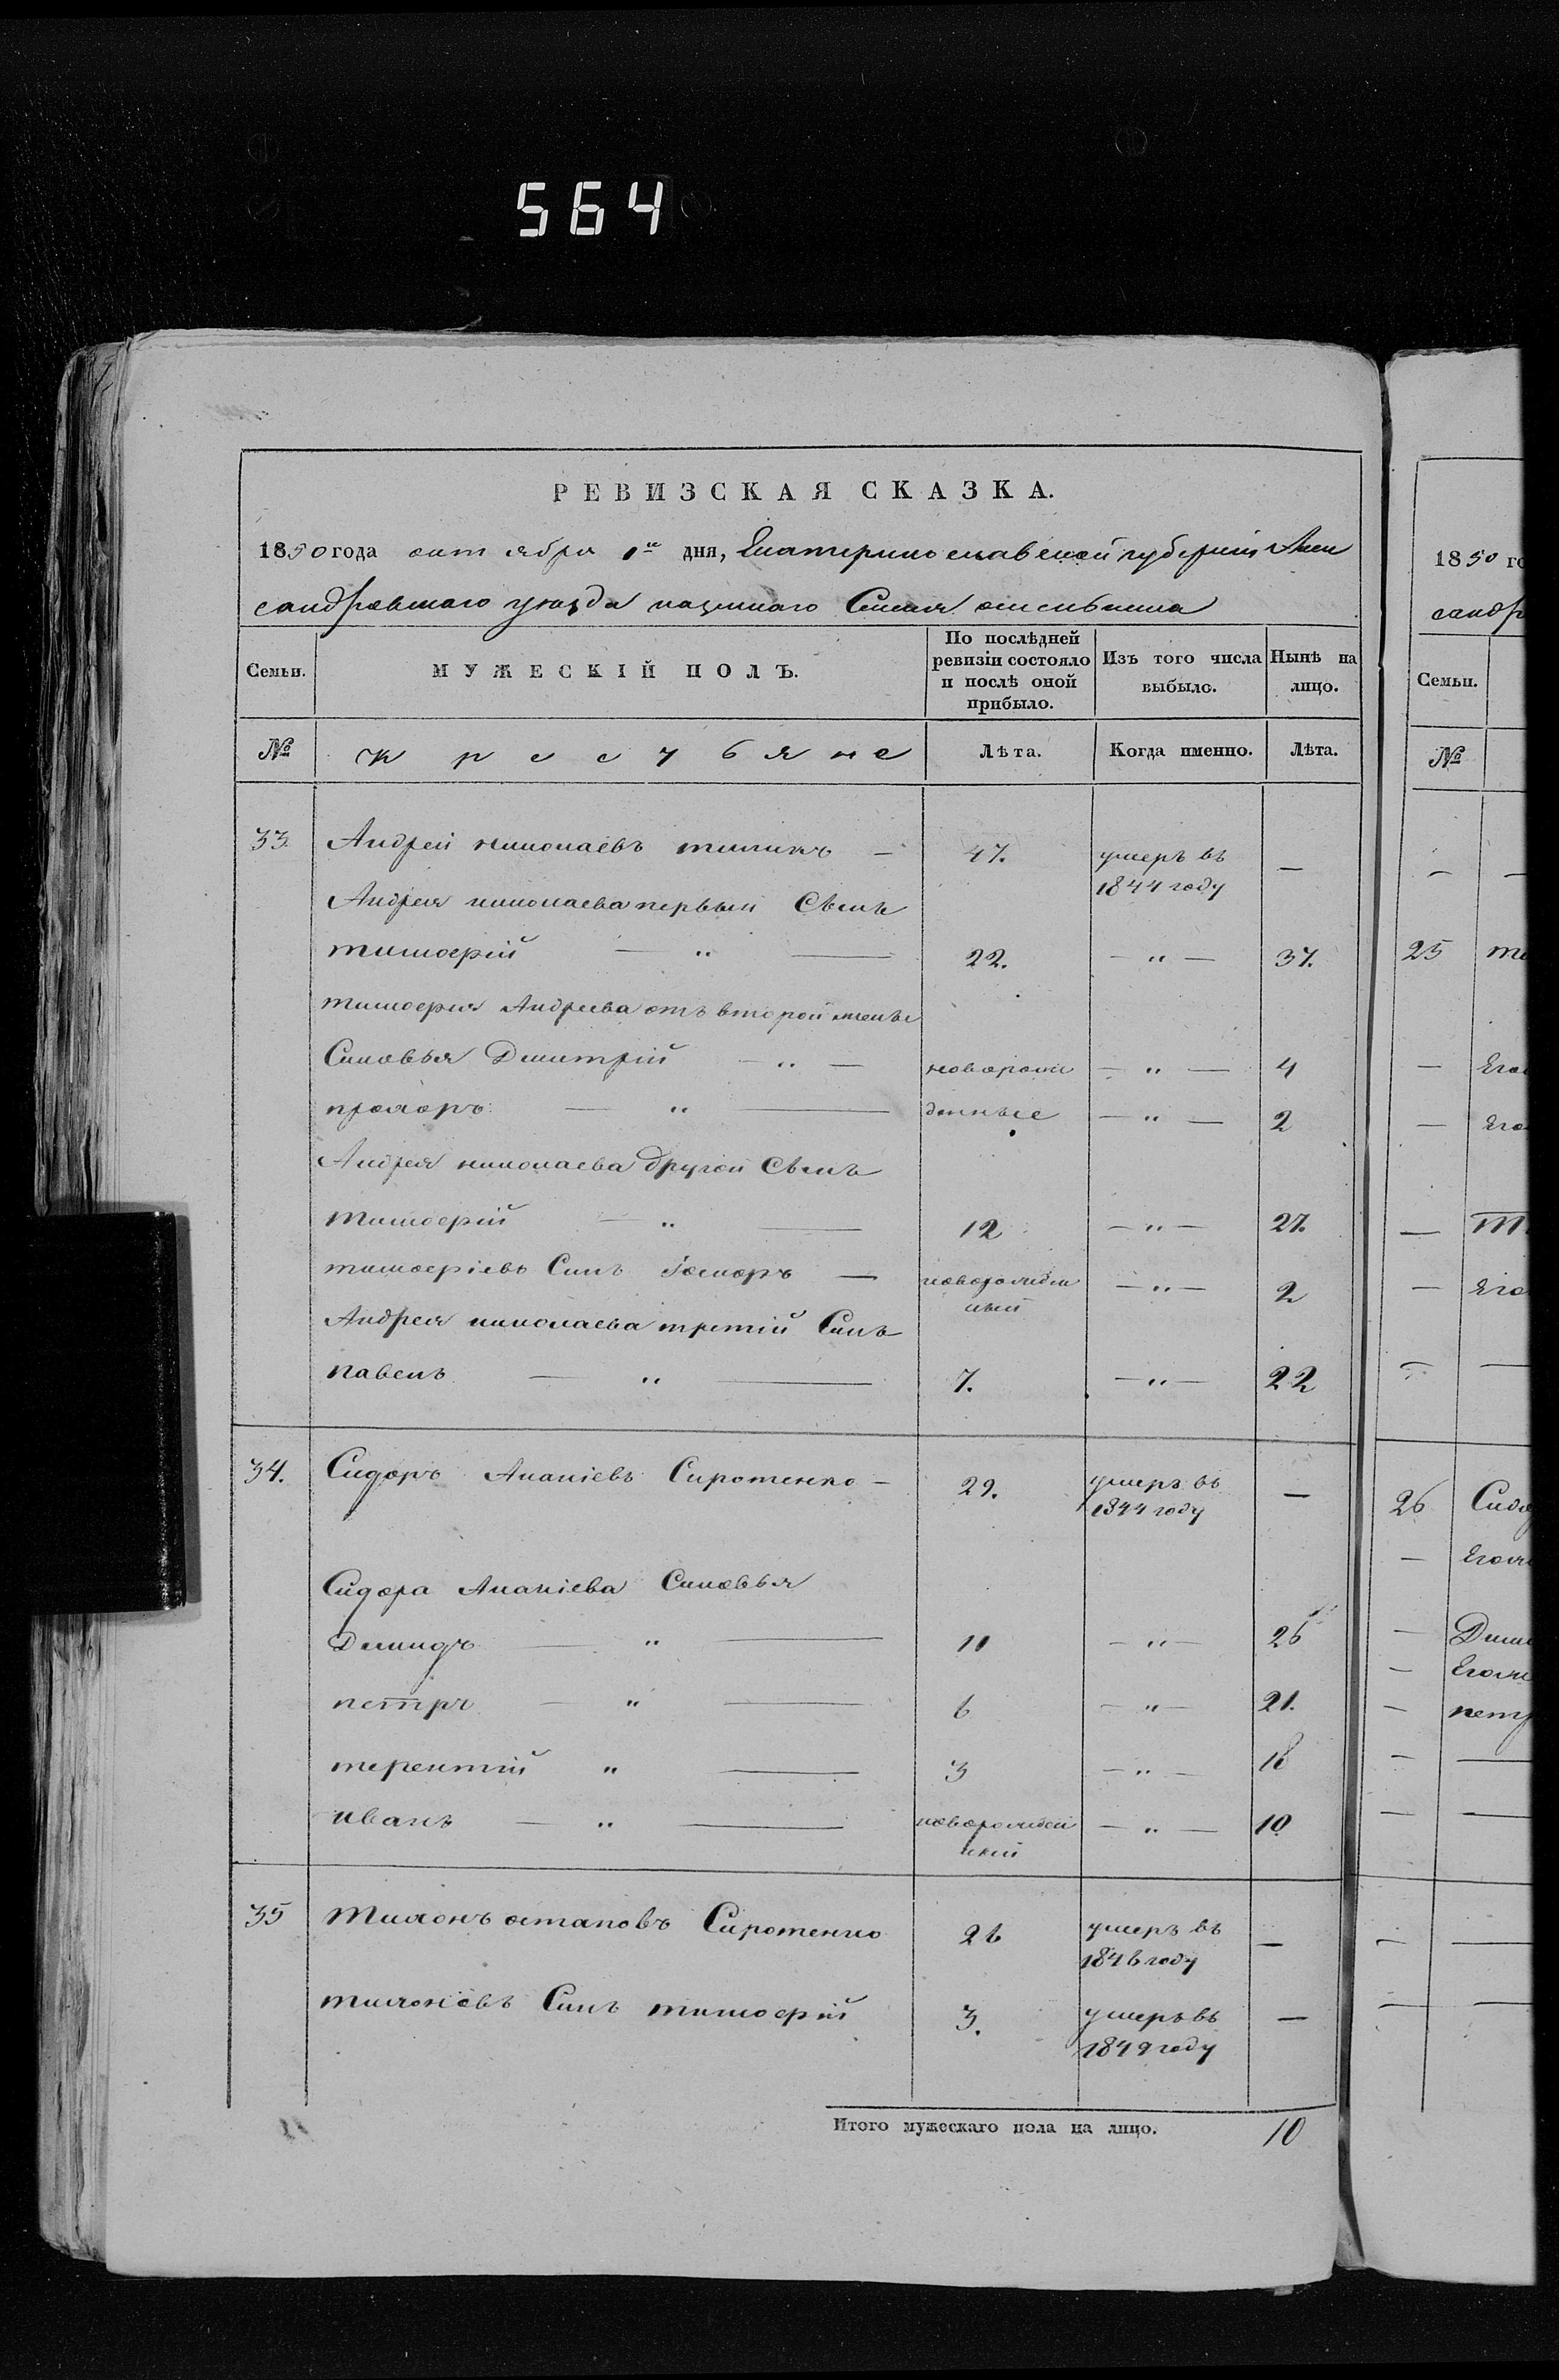 564
РЕВИЗСКАЯ СКАЗКА.
1850 года октября 1го дня, Екатеринославской губернии Алек
сандровскаго уезда казеннаго Селения
Семьи.
МУЖЕСКІЙ ПОЛЪ.
По послѣдней ревизіи состояло и послѣ оной прибыло.
Изъ того числа выбыло.
Нынѣ на лицо.
№ крестьяне Лѣта. Когда именно. Лѣта.
33 Андрей николаевъ — 47. умеръ въ 1844 году —
Андрея николаева первый Сынъ
тимоѳрій — " — 22. — " — 37.
тимоѳрия Андреева отъ второй жены
Синовья Дмитрій — " — новорож — " — 4
прохоръ — " — денные — " — 2
Андрея николаева другой Сынъ
тимоѳрій — " — 12 — " — 27.
тимоѳріевъ Синъ — новорожден ный — " — 2
Андрея николаева третій Синъ
павелъ — " — 7. — " — 22
34. Сидоръ Ананіевъ Сиротенко — 29. умеръ въ 1844 году —
Сидора Ананіева Синовья
Демидъ — " — 11 — " — 26
петръ — " — 6 — " — 21.
терентий " — 3 — " — 18
иванъ — " — новорожден ний — " — 10
35 остаповъ Сиротенко 26 умеръ въ 1846 году —
Синъ тимоѳрій 3. умеръ въ 1849 году —
Итого мужескаго пола на лицо. 10
1850 го
сандр
Семьи.
№
25
26 Сидо
петр